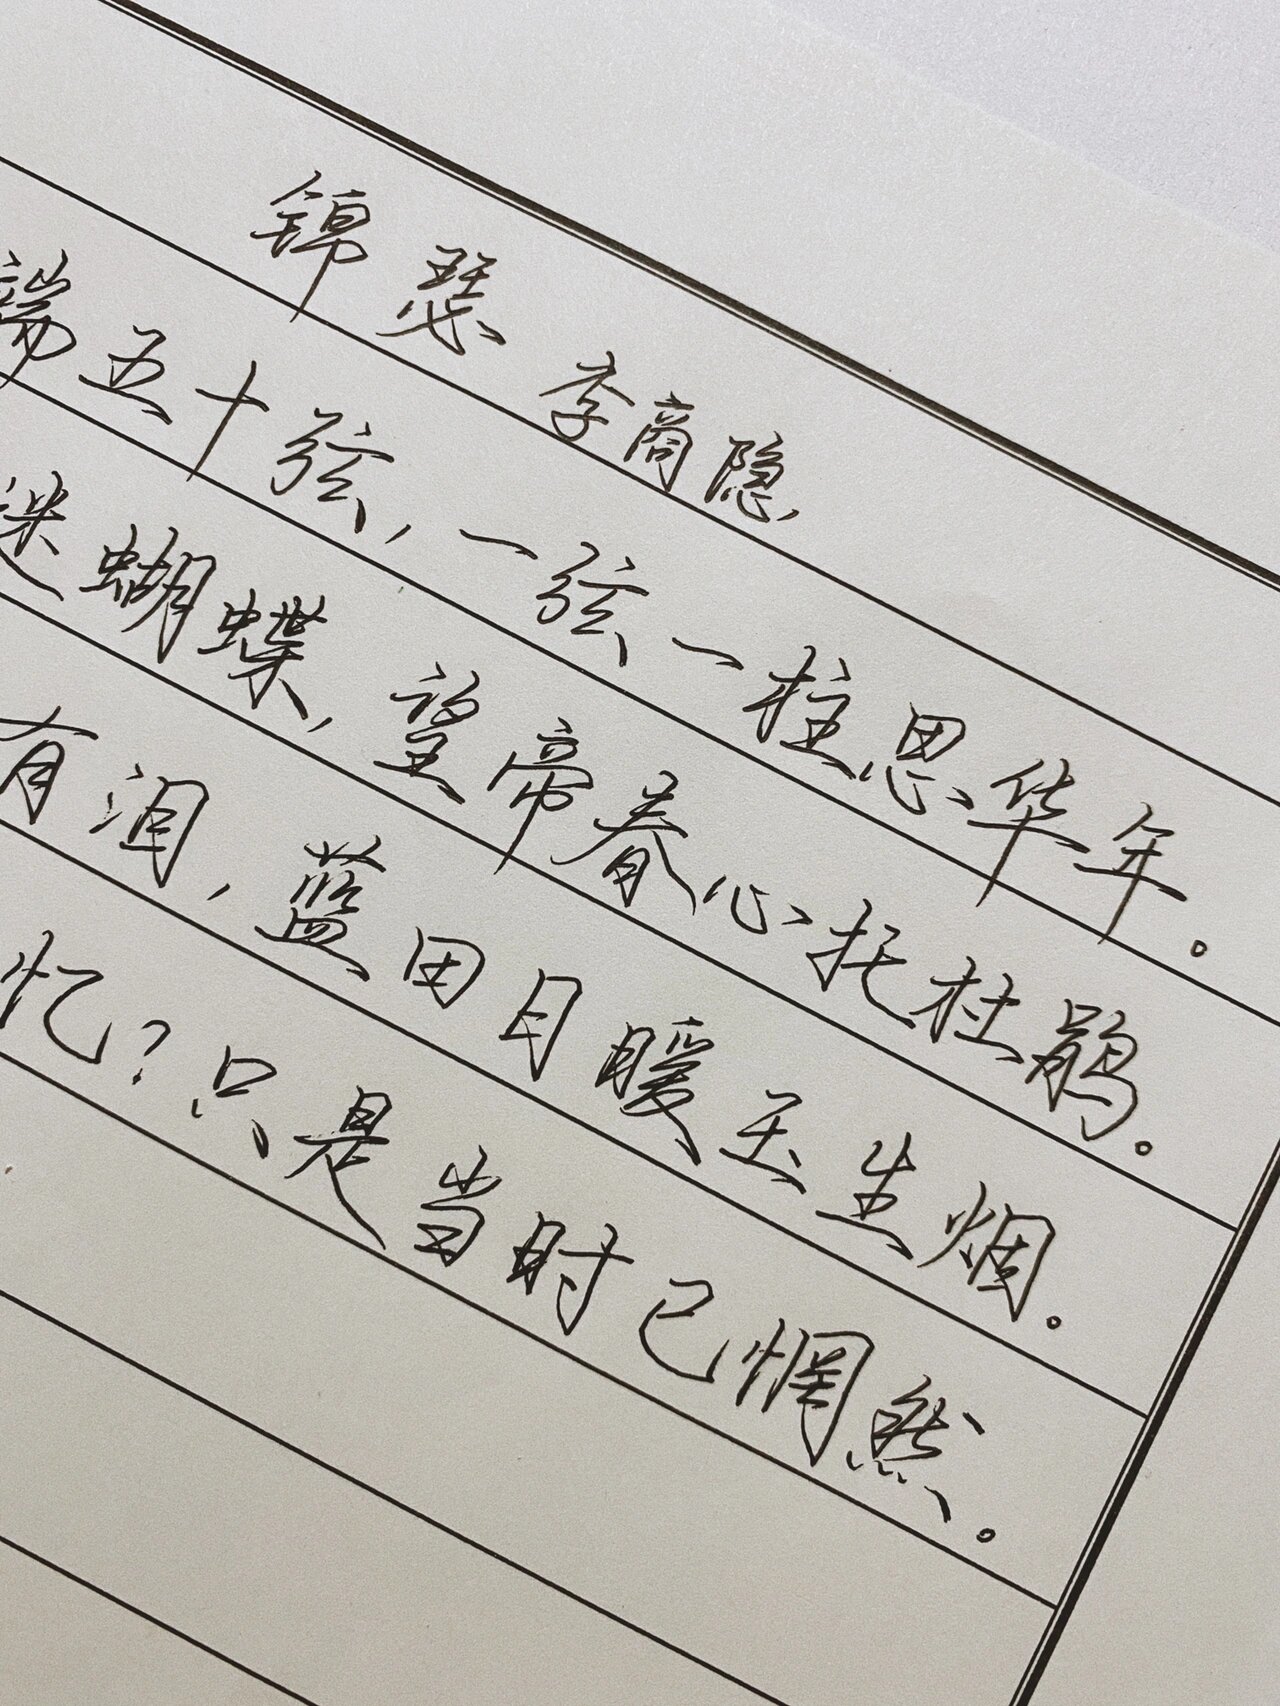 锦瑟 李商隐
端五十弦,一弦一柱思华年。
迷蝴蝶,望帝春心托杜鹃。
有泪,蓝田日暖玉生烟。
忆?只是当时已惘然。